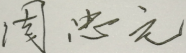 周忠元